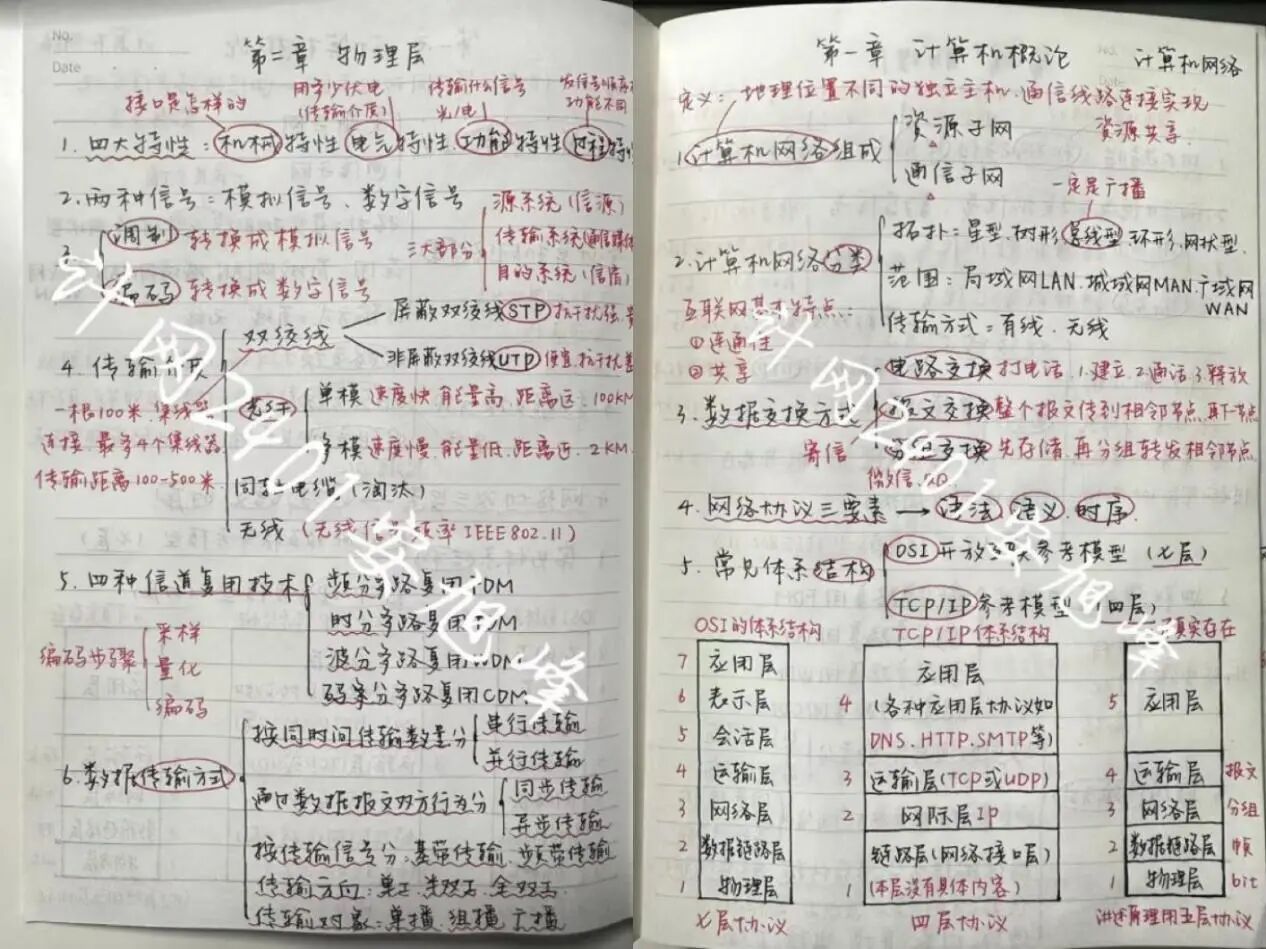 No.
Date
第二章 物理层
接口是怎样的
用多少伏电
(传输介质)
传输什么信号
光/电
发信号顺序和
功能不同
1. 四大特性：机械特性 电气特性 功能特性 过程特性
2. 两种信号：模拟信号、数字信号
3.
调制 转换成模拟信号
编码 转换成数字信号
三大部分
源系统(信源)
传输系统(通信媒体
目的系统(信宿)
4. 传输介质
双绞线
屏蔽双绞线STP 抗干扰强.贵
非屏蔽双绞线UTP 便宜.抗干扰差
一根100米.集线器
连接.最多4个集线器
传输距离100-500米
光纤
单模 速度快.能量高.距离远.100KM
多模 速度慢.能量低.距离近.2KM
同轴电缆(淘汰)
无线(无线信号频率IEEE802.11)
5. 四种信道复用技术
频分多路复用FDM
时分多路复用TDM
波分多路复用WDM
码分多路复用CDM
编码步骤
采样
量化
编码
6. 数据传输方式
按同时间传输数量分
串行传输
并行传输
通过数据报文双方行为分
同步传输
异步传输
按传输信号分：基带传输、频带传输
传输方向：单工.半双工.全双工.
传输对象：单播.组播.广播
计网2401 安旭峰
第一章 计算机概论
计算机网络
定义：地理位置不同的独立主机.通信线路连接实现
资源共享
1. 计算机网络组成
资源子网
通信子网
一定是广播
2. 计算机网络分类
拓扑：星型.树形 总线型 环形.网状型.
范围：局域网LAN.城域网MAN.广域网
WAN
传输方式：有线、无线
互联网基本特点：
①连通性
②共享
3. 数据交换方式
电路交换 打电话.1.建立.2.通话.3.释放
报文交换 整个报文传到相邻节点.再下一节点
寄信
分组交换 先存储.再分组转发相邻节点
微信.QQ
4. 网络协议三要素→语法 语义.时序
5. 常见体系结构
OSI 开放互联参考模型(七层)
TCP/IP 参考模型(四层)
真实存在
OSI的体系结构
7 应用层
6 表示层
5 会话层
4 运输层
3 网络层
2 数据链路层
1 物理层
七层协议
TCP/IP体系结构
应用层
4 (各种应用层协议如
DNS.HTTP.SMTP等)
3 运输层(TCP或UDP)
2 网际层IP
链路层(网络接口层)
1 (本层没有具体内容)
四层协议
5 应用层
4 运输层 报文
3 网络层 分组
2 数据链路层 帧
1 物理层 bit
讲述原理用五层协议
计网2401 安旭峰